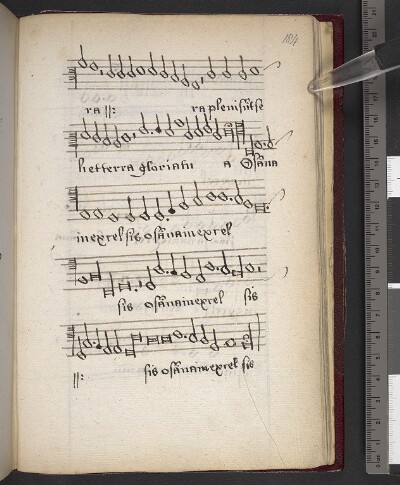 184
ra ||: ra pleni sũt ce
li et terra gloria tu a Osãna
in excelsis osãna in excel
sis osãna in excel sis
||: sis osãna in excel sis